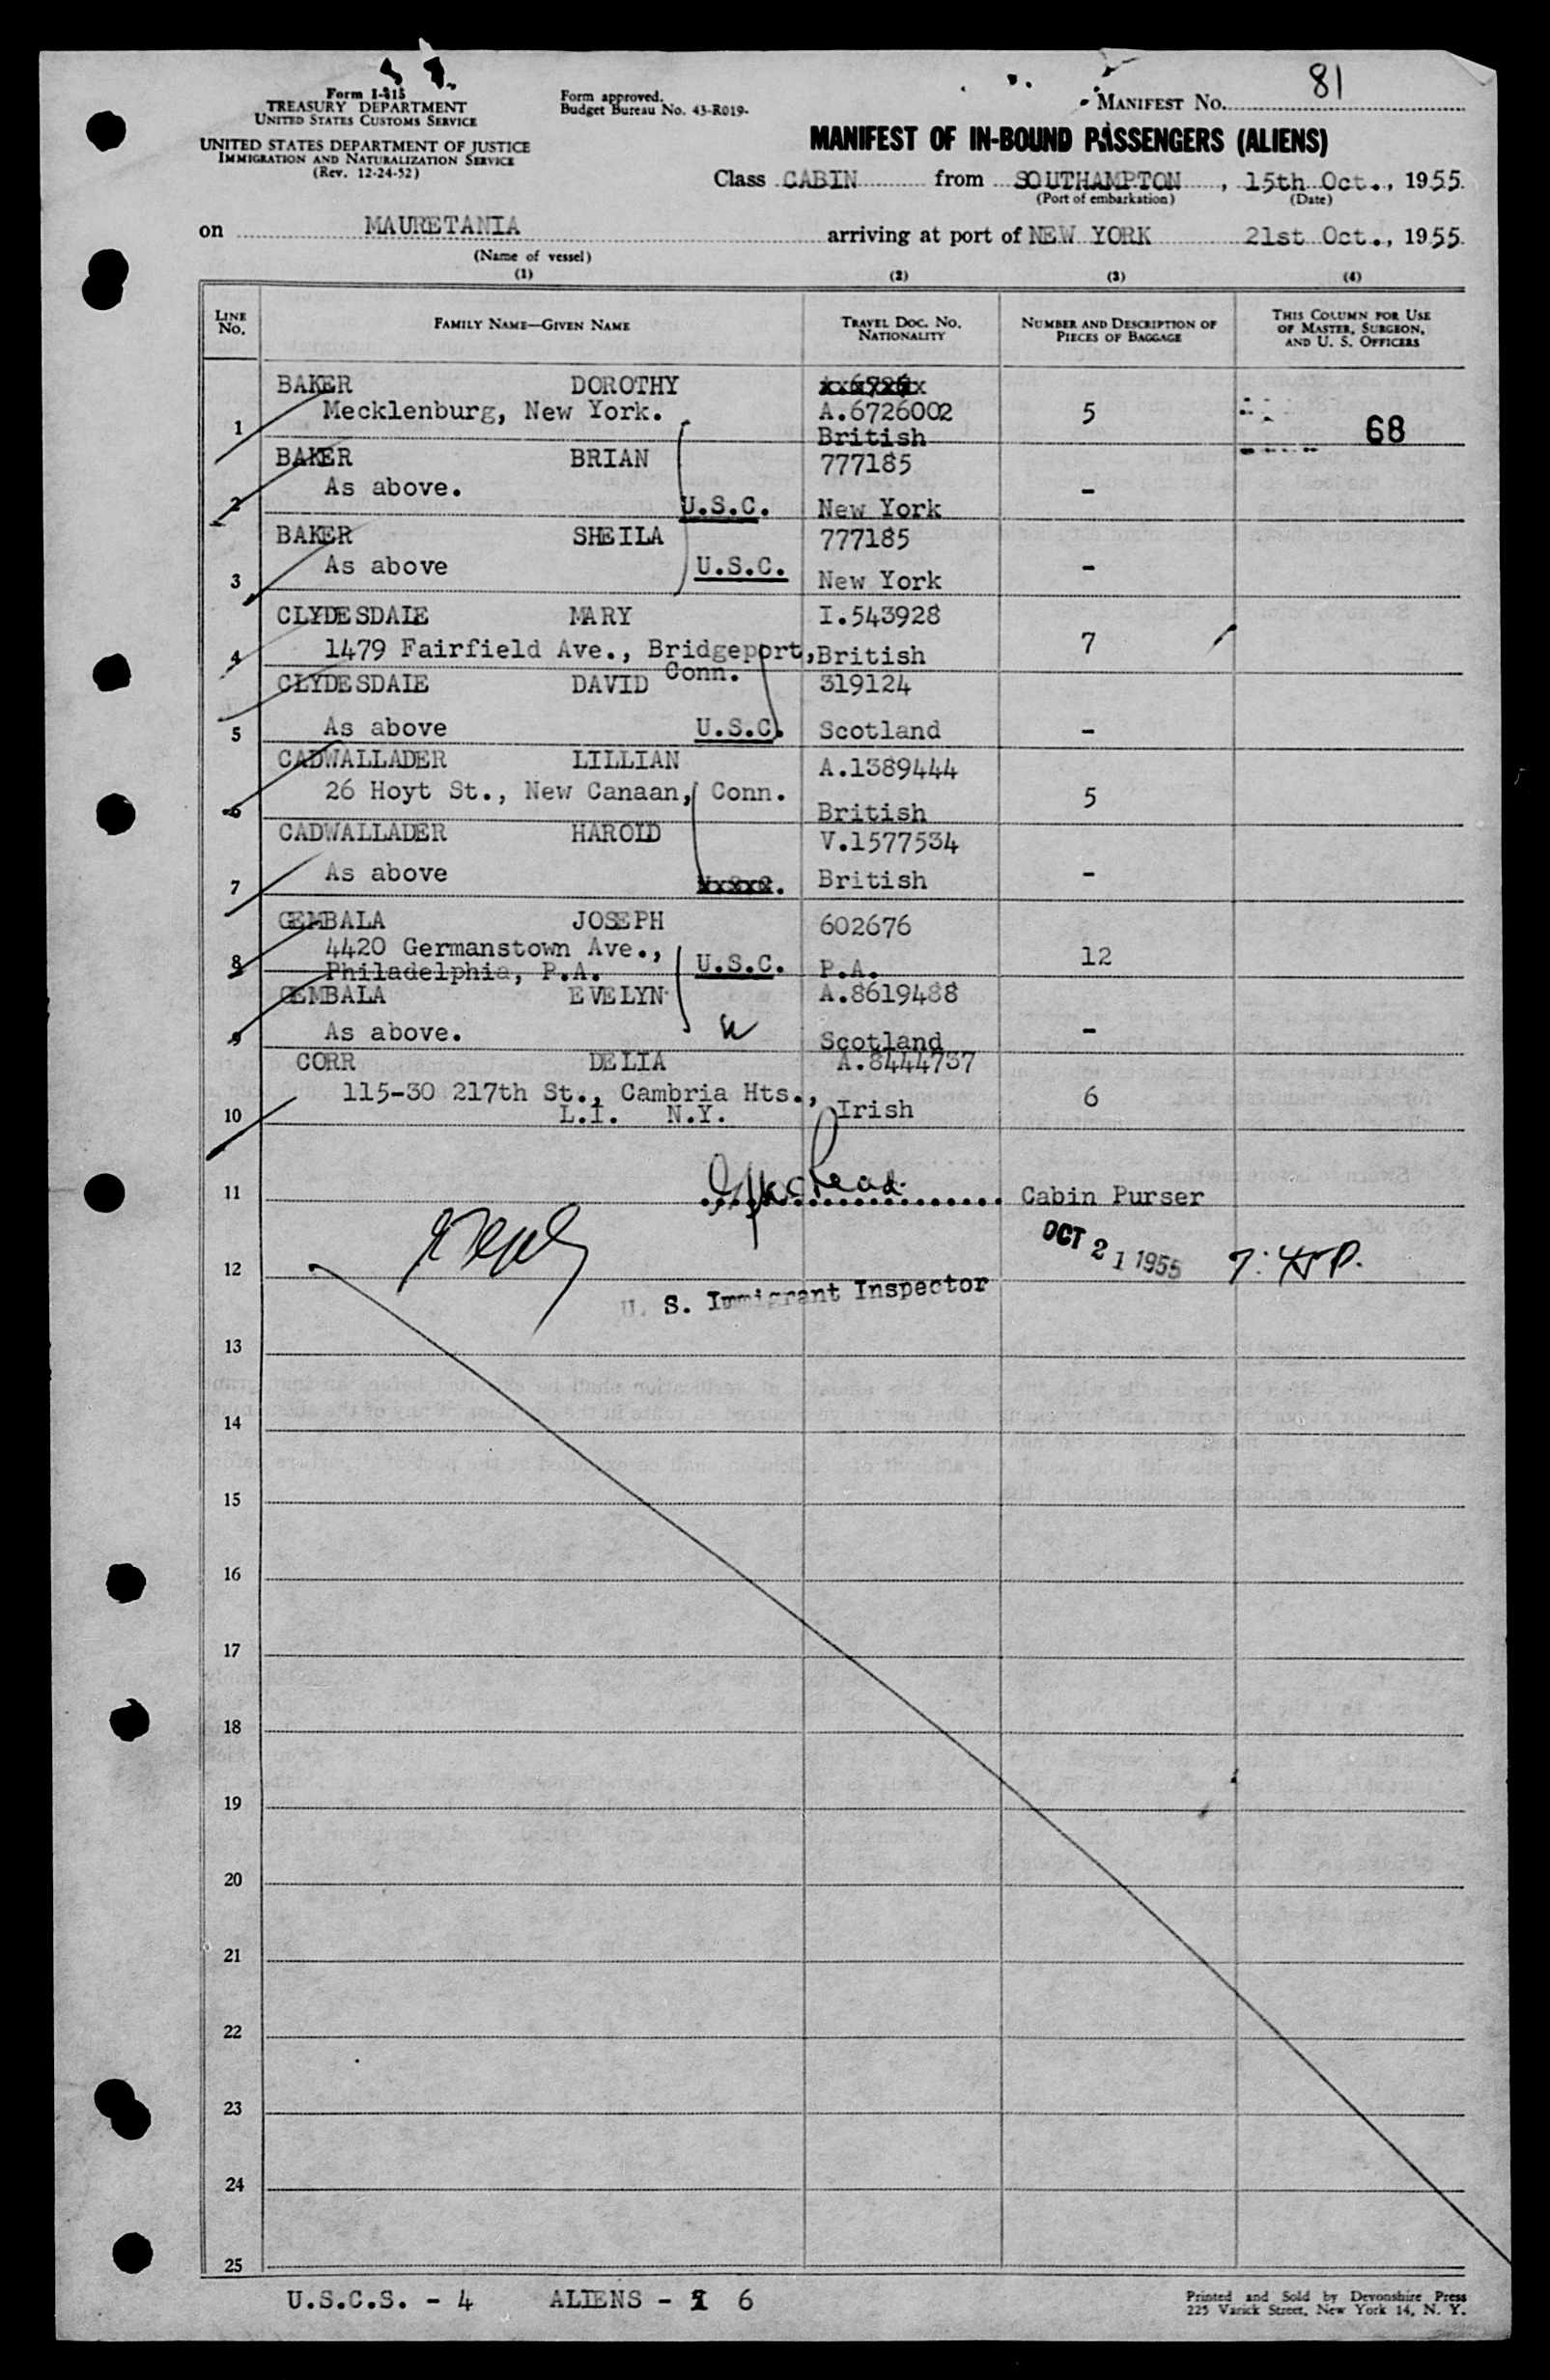 Form I-415
TREASURY DEPARTMENT
UNITED STATES CUSTOMS SERVICE
UNITED STATES DEPARTMENT OF JUSTICE
IMMIGRATION AND NATURALIZATION SERVICE
(Rev. 12-24-52)
Form approved.
Budget Bureau No. 43-R019-
MANIFEST NO. 81
MANIFEST OF IN-BOUND PASSENGERS (ALIENS)
Class CABIN from SOUTHAMPTON, 15th Oct., 1955
(Port of embarkation) (Date)
on MAURETANIA arriving at port of NEW YORK 21st Oct., 1955
(Name of vessel)
(1) (2) (3) (4)
LINE NO. FAMILY NAME—GIVEN NAME TRAVEL DOC. NO. NATIONALITY NUMBER AND DESCRIPTION OF PIECES OF BAGGAGE THIS COLUMN FOR USE OF MASTER, SURGEON, AND U. S. OFFICERS
BAKER DOROTHY
Mecklenburg, New York. A.6726002 5
1 British 68
BAKER BRIAN 777185
As above. -
2 U.S.C. New York
BAKER SHEILA 777185
As above U.S.C. -
3 New York
CLYDESDALE MARY I.543928
4 1479 Fairfield Ave., Bridgeport, British 7
Conn.
CLYDESDALE DAVID 319124
5 As above U.S.C. Scotland -
CADWALLADER LILLIAN A.1389444
26 Hoyt St., New Canaan, Conn. 5
6 British
CADWALLADER HAROLD V.1577534
7 As above British -
GEMBALA JOSEPH 602676
4420 Germanstown Ave., 12
8 Philadelphia, P.A. U.S.C. P.A.
GEMBALA EVELYN A.8619488
9 As above. Scotland -
CORR DELIA A.8444737
115-30 217th St., Cambria Hts., 6
10 L.I. N.Y. Irish
11 Cabin Purser
OCT 21 1955
12
U. S. Immigrant Inspector
13
14
15
16
17
18
19
20
21
22
23
24
25
U.S.C.S. - 4 ALIENS - 6
Printed and Sold by Devonshire Press
225 Varick Street, New York 14, N. Y.